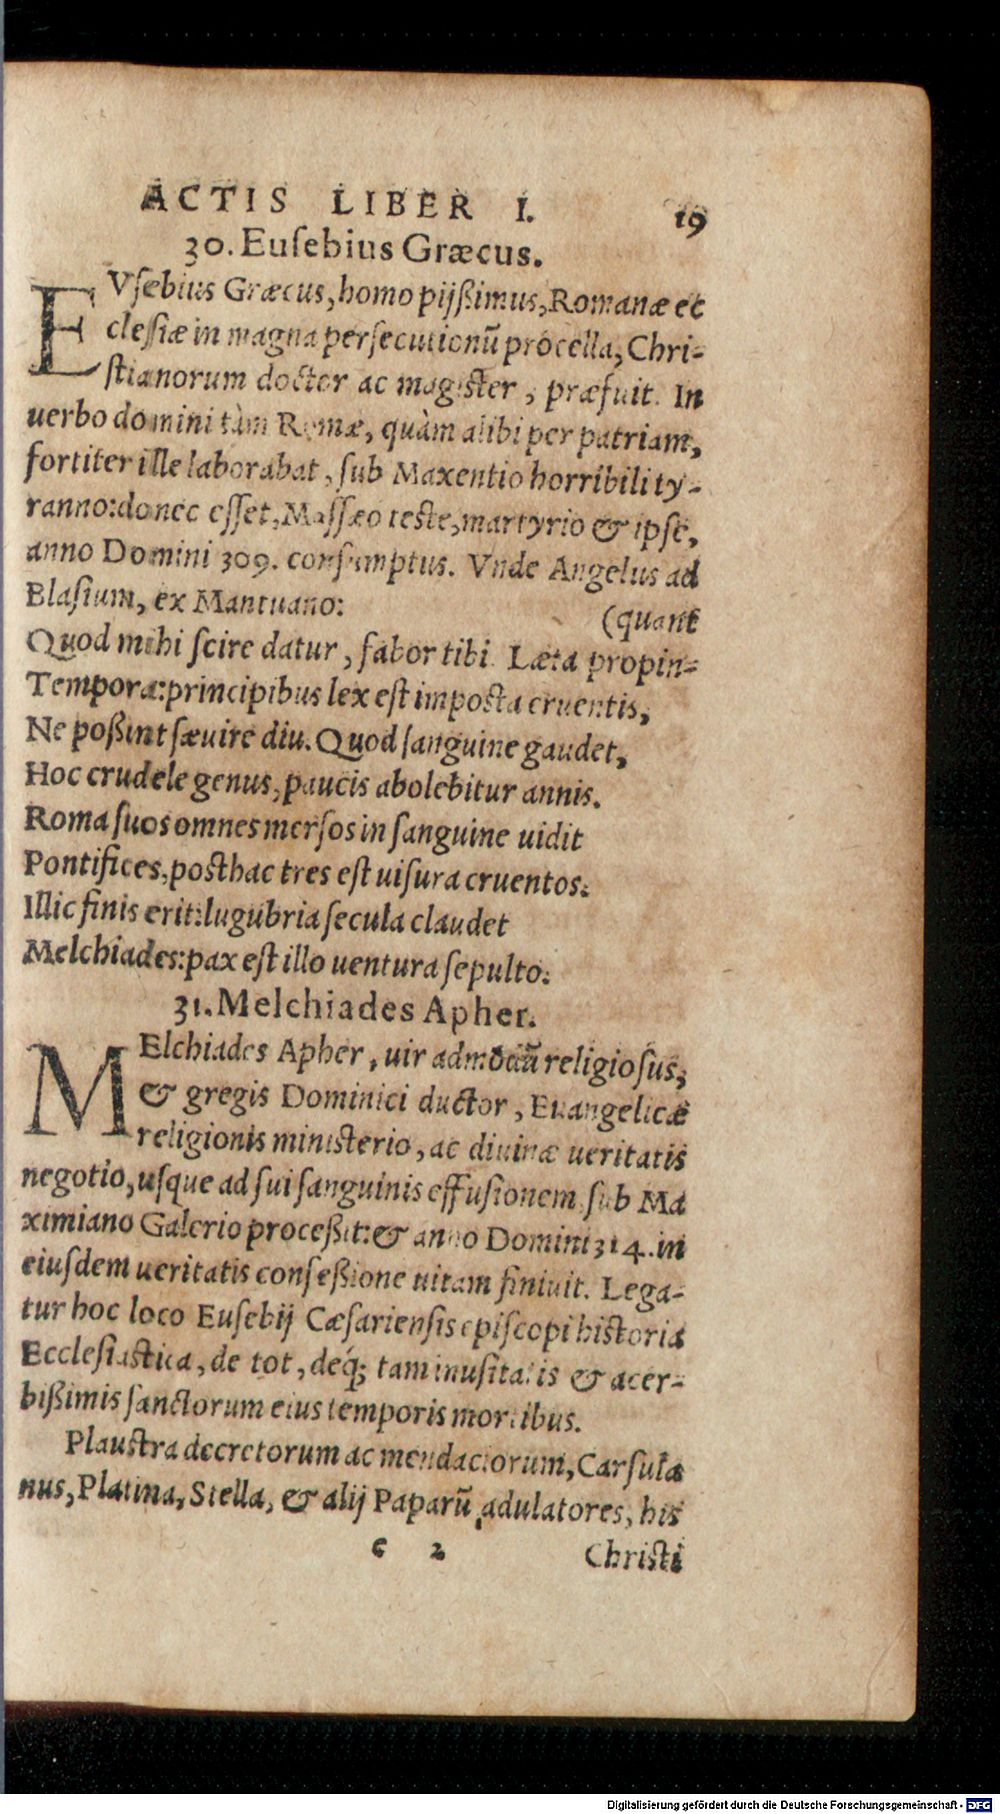 ACTIS LIBER I. 19
30. Euſebius Græcus.
EVſebius Græcus, homo pijßimus, Romanæ ec
cleſiæ in magna perſecutionũ procella, Chri-
ſtianorum doctor ac magiſter, præfuit. In
uerbo domini tàm Romæ, quàm alibi per patriam,
fortiter ille laborabat, ſub Maxentio horribili ty-
ranno: donec eſſet, Maſſæo teſte, martyrio & ipſe,
anno Domini 309. conſumptus. Vnde Angelus ad
Blaſium, ex Mantuano: (quant
Quod mihi ſcire datur, fabor tibi. Læta propin-
Tempora: principibus lex eſt impoſta cruentis,
Ne poßint ſæuire diu. Quod ſanguine gaudet,
Hoc crudele genus, paucis abolebitur annis.
Roma ſuos omnes merſos in ſanguine uidit
Pontifices, poſthac tres eſt uiſura cruentos.
Illic finis erit: lugubria ſecula claudet
Melchiades: pax eſt illo uentura ſepulto.
31. Melchiades Apher.
MElchiades Apher, uir admodũ religioſus,
& gregis Dominici ductor, Euangelicæ
religionis miniſterio, ac diuinæ ueritatis
negotio, uſque ad ſui ſanguinis effuſionem ſub Ma
ximiano Galerio proceßit: & anno Domini 314. in
eiuſdem ueritatis confeßione uitam finiuit. Lega-
tur hoc loco Euſebij Cæſarienſis epiſcopi hiſtoria
Eccleſiaſtica, de tot, deq́; tam inuſitatis & acer-
bißimis ſanctorum eius temporis mortibus.
Plauſtra decretorum ac mendaciorum, Carſula
nus, Platina, Stella, & alij Paparũ adulatores, his
c 2 Chriſti
Digitalisierung gefördert durch die Deutsche Forschungsgemeinschaft - DFG